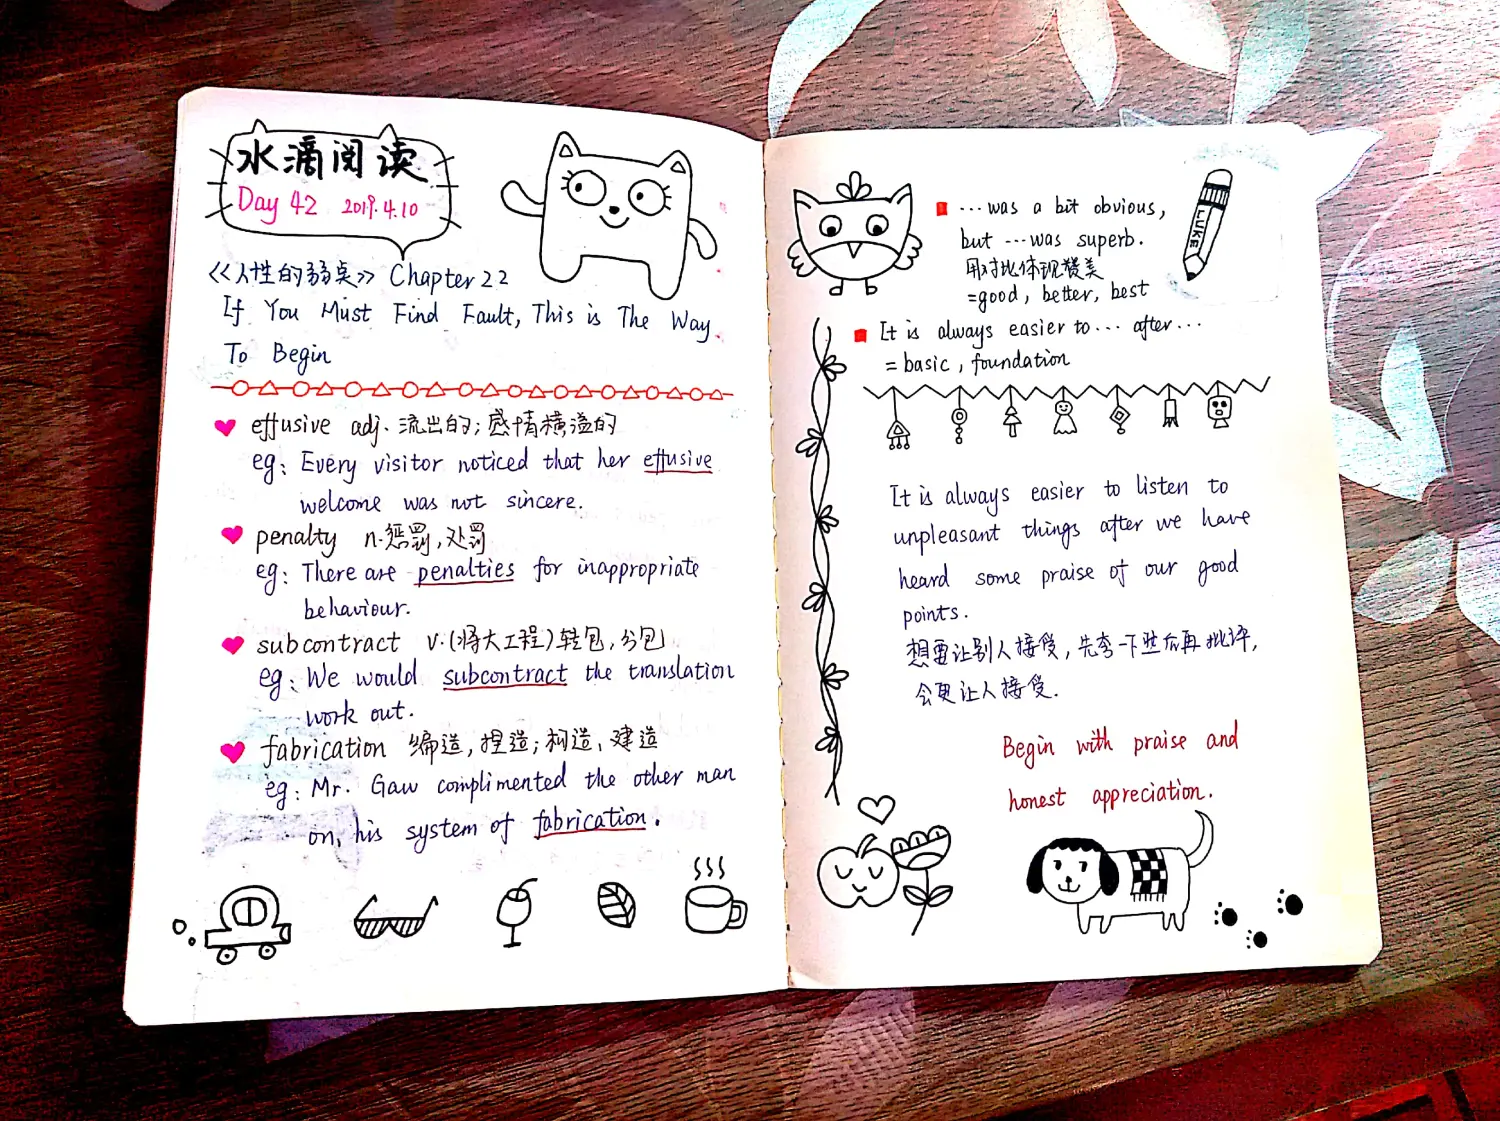 水滴阅读
Day 42 2019.4.10
《人性的弱点》 Chapter 22
If You Must Find Fault, This is The Way
To Begin
effusive adj. 流出的;感情横溢的
eg: Every visitor noticed that her effusive
welcome was not sincere.
penalty n.惩罚,处罚
eg: There are penalties for inappropriate
behaviour.
subcontract v.(将大工程)转包,分包
eg: We would subcontract the translation
work out.
fabrication 编造,捏造;构造、建造
eg: Mr. Gaw complimented the other man
on, his system of fabrication.
...was a bit obvious,
but ...was superb.
用对比体现赞美
=good, better, best
It is always easier to... after...
= basic, foundation
LUKE
It is always easier to listen to
unpleasant things after we have
heard some praise of our good
points.
想要让别人接受,先夸一下然后再批评,
会更让人接受.
Begin with praise and
honest appreciation.